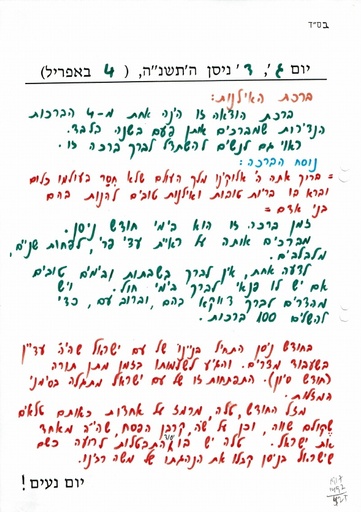 בס״ד
יום ג׳, ד׳ ניסן ה׳תשנ״ה, ( 4 באפריל)
ברכת האילנות:
ברכת הודאה זו הינה אחת מ-4 הברכות
הנדירות שמברכים אותן פעם בשנה בלבד.
ראוי גם לנשים להשתדל לברך ברכה זו.
נוסח הברכה:
= ברוך אתה ה׳ אלוקינו מלך העולם שלא חיסר בעולמו כלום
וברא בו בריות טובות ואילנות טובים להנות בהם
בני אדם =
זמן ברכה זו הוא בימי חודש ניסן.
מברכים אותה על ראיית עצי פרי, לפחות שנים,
מלבלבים.
לדעה אחת, אין לברך בשבתות ובימים טובים
אם יש לו פנאי לברך בימי חול. ויש
מהדרים לברך דווקא בהם, וברוב עם, כדי
להשלים 100 ברכות.
בחודש ניסן התחיל בניינו של עם ישראל שהיה עדיין
בשעבוד מצרים. והגיע לשלמותו בזמן מתן תורה
(חודש סיון). התפתחות זו של עם ישראל מתגלה בסימני
המזלות.
מזל החודש, טלה, מרמז על אחדות כאותם טלאים
שקולם שווה, וכן על שה קרבן הפסח, שהיה מאחד
את ישראל. טלה יש בו עוד התבטלות לרועה כשם
שישראל בניסן קבלו את הנהגתו של משה רבינו.
יום נעים!